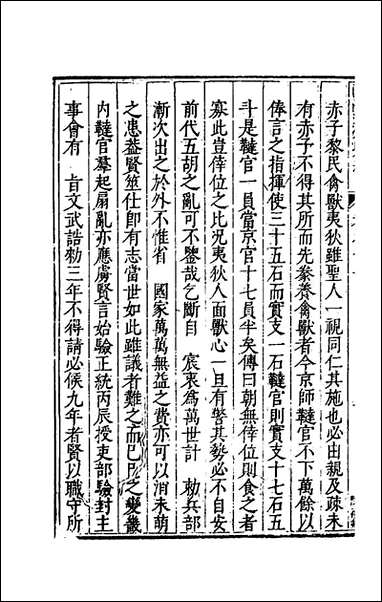 赤子黎民禽獸夷狄雖聖人一視同仁其施也必出親及疎未
有赤子不得其所而先豢養禽獸者今京師韃官不下萬餘以
俸言之指揮使三十五石而實支一石韃官則實支十七石五
斗是韃官一員當京官十七員半矣傳曰朝無倖位則食之者
寡此豈倖位之比况夷狄人面獸心一旦有警其勢必不自安
前代五胡之亂可不鑒哉乞斷自 宸衷爲萬世計 勅兵部
漸次出之於外不惟省 國家萬萬無益之費亦可以消未萌
之患葢賢筮仕即有志當世如此雖議者難之而巳巳之變畿
内韃官羣起扇亂亦應虜賢言始驗正統丙辰授吏部驗封主
事會有 旨文武誥勅三年不得請必候九年者賢以職守所